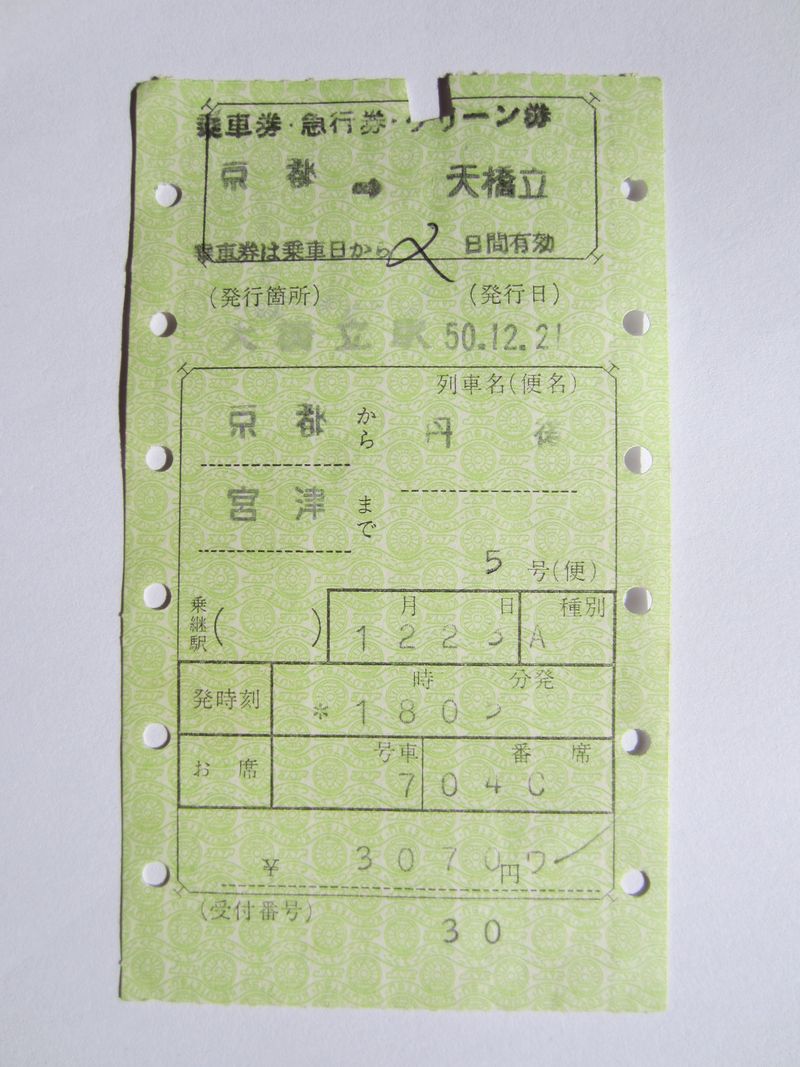 乗車券・急行券・グリーン券
京都 ➡ 天橋立
乗車券は乗車日から2日間有効
(発行箇所) (発行日)
天橋立駅 50.12.21
列車名(便名)
京都 から 丹後
宮津 まで
5 号(便)
乗継駅( ) 月 日 種別
1223 A
発時刻 時 分発
*180
お席 号車 番 席
7 04 C
¥ 3070円ワ
(受付番号)
30